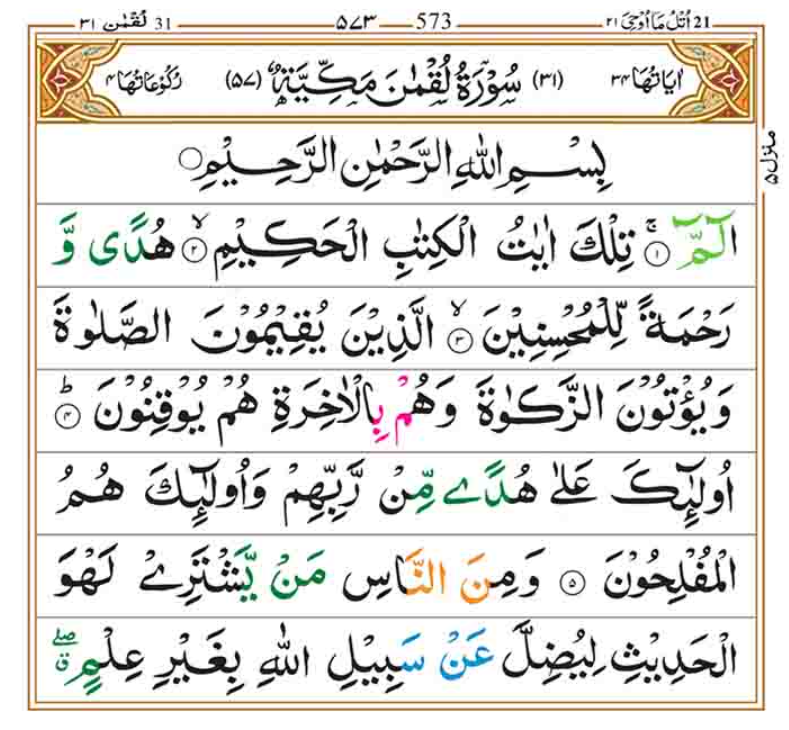 21 اُتْلُ مَآ اُوْحِیَ ۲۱ 573 ۵۷۳ 31 لُقْمٰن ۳۱
اٰیَاتُهَا ۳۴ (۳۱) سُوْرَةُ لُقْمٰنَ مَكِّیَّةٌ (۵۷) رُكُوْعَاتُهَا ۴
منزل ۵
بِسْمِ اللّٰهِ الرَّحْمٰنِ الرَّحِیْمِ
الٓمّٓ ۚ﴿۱﴾ تِلْكَ اٰیٰتُ الْكِتٰبِ الْحَكِیْمِ ۙ﴿۲﴾ هُدًی وَّ
رَحْمَةً لِّلْمُحْسِنِیْنَ ۙ﴿۳﴾ الَّذِیْنَ یُقِیْمُوْنَ الصَّلٰوةَ
وَیُؤْتُوْنَ الزَّكٰوةَ وَهُمْ بِالْاٰخِرَةِ هُمْ یُوْقِنُوْنَ ؕ﴿۴﴾
اُولٰٓئِكَ عَلٰی هُدًی مِّنْ رَّبِّهِمْ وَاُولٰٓئِكَ هُمُ
الْمُفْلِحُوْنَ ﴿۵﴾ وَمِنَ النَّاسِ مَنْ یَّشْتَرِیْ لَهْوَ
الْحَدِیْثِ لِیُضِلَّ عَنْ سَبِیْلِ اللّٰهِ بِغَیْرِ عِلْمٍ ۖق